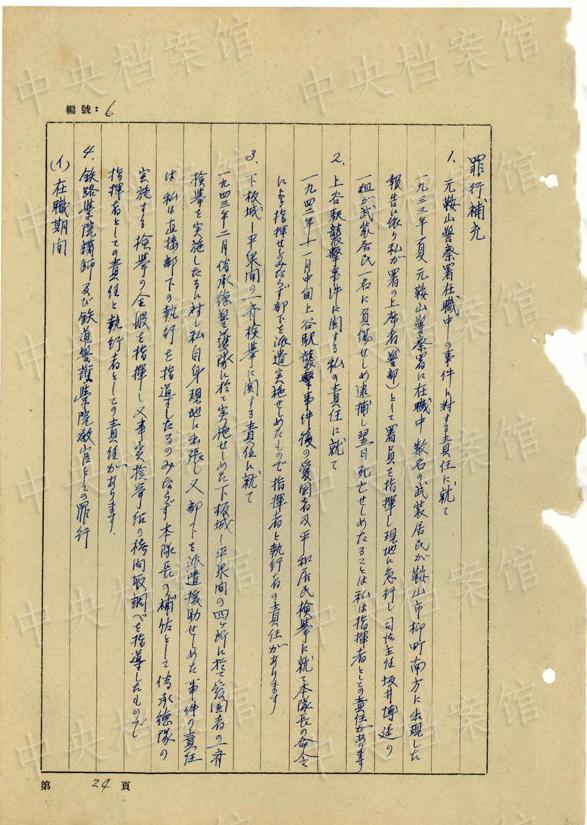 編號：6
罪行補充
1、元鞍山警察署在職中の事件に対する責任に就て
一九三三年夏元鞍山警察署に在職中数名の武装居民が鞍山市柳町南方に出現した
報告に依り私が署の上席者(警部)として署員を指揮し現地に急行し司法主任坂井博延の
一組が武装居民一名に負傷せしめ逮捕し翌日死亡せしめたることは私は指揮者としての責任があります
2、上谷駅襲撃事件に関する私の責任に就て
一九四二年十一月中旬上谷駅襲撃事件後の愛国者及平和居民検挙に就て本隊長の命令
により指揮せしのみならず部下を派遣実施せしめたもので指揮者と執行者の責任があります
3、下板城—平泉間の一斉検挙に関する責任に就て
一九四三年二月偽承徳警護隊に於て実施せしめた下板城—平泉間の四ヶ所に於て愛国者の一斉
検挙を実施したるに対し私自身現地に出張し又部下を派遣援助せしめた事件の責任
は私は直接部下の執行を指導したるのみならず本隊長の補佐として偽承徳隊の
実施する検挙の全般を指揮し又事実検挙后の拷問取調べを指導したもので
指揮者としての責任と執行者としての責任があります.
4、鉄路学院講師及び鉄道警護学院教官としての罪行
(1)在職期間
第 24 頁
中央档案馆